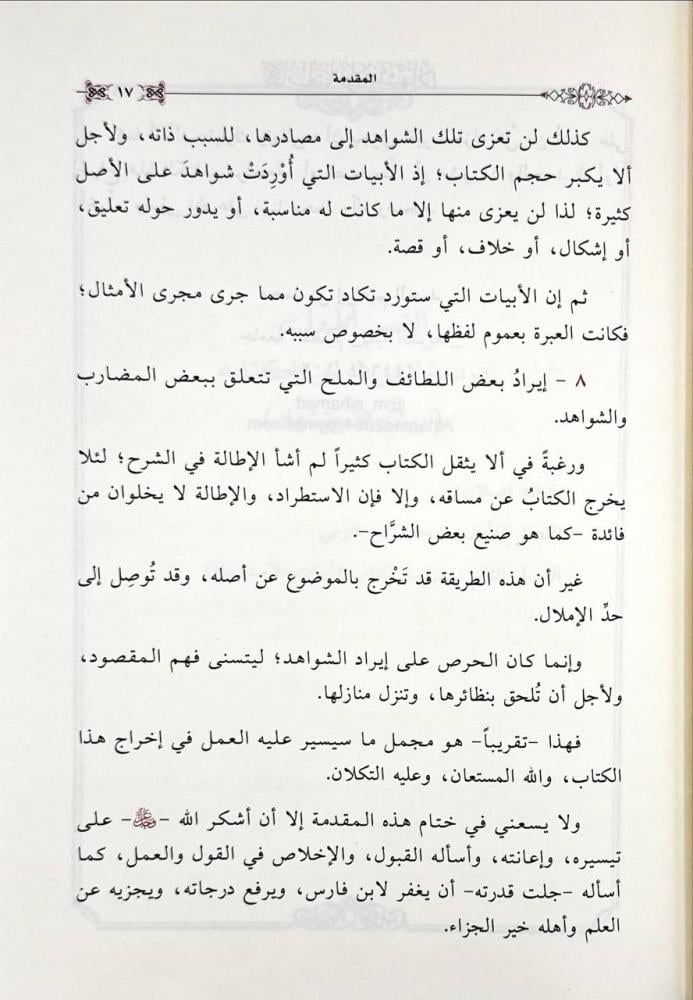 المقدمة
١٧
كذلك لن تعزى تلك الشواهد إلى مصادرها، للسبب ذاته، ولأجل
ألا يكبر حجم الكتاب؛ إذ الأبيات التي أُوْرِدَتْ شواهدَ على الأصل
كثيرة؛ لذا لن يعزى منها إلا ما كانت له مناسبة، أو يدور حوله تعليق،
أو إشكال، أو خلاف، أو قصة.
ثم إن الأبيات التي ستورد تكاد تكون مما جرى مجرى الأمثال؛
فكانت العبرة بعموم لفظها، لا بخصوص سببه.
٨ - إيرادُ بعض اللطائف والملح التي تتعلق ببعض المضارب
والشواهد.
ورغبةً في ألا يثقل الكتاب كثيراً لم أشأ الإطالة في الشرح؛ لئلا
يخرج الكتابُ عن مساقه، وإلا فإن الاستطراد، والإطالة لا يخلوان من
فائدة -كما هو صنيع بعض الشرَّاح-.
غير أن هذه الطريقة قد تَخْرج بالموضوع عن أصله، وقد تُوصِل إلى
حدِّ الإملال.
وإنما كان الحرص على إيراد الشواهد؛ ليتسنى فهم المقصود،
ولأجل أن تُلحق بنظائرها، وتنزل منازلها.
فهذا -تقريباً- هو مجمل ما سيسير عليه العمل في إخراج هذا
الكتاب، والله المستعان، وعليه التكلان.
ولا يسعني في ختام هذه المقدمة إلا أن أشكر الله -- على
تيسيره، وإعانته، وأسأله القبول، والإخلاص في القول والعمل، كما
أسأله -جلت قدرته- أن يغفر لابن فارس، ويرفع درجاته، ويجزيه عن
العلم وأهله خير الجزاء.